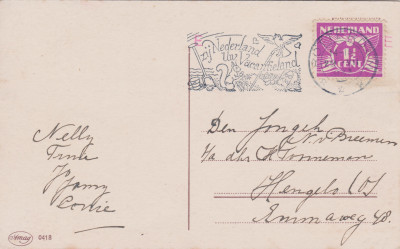 Zij Nederland
Uw
Vacantieland
NEDERLAND
1½
CENT
Nelly
Truus
Jo
Jenny
Corrie
Den Jongeh
N. v Breemen
p/a dhr H Tonneman
Hengelo (O)
Emmaweg 48.
0418